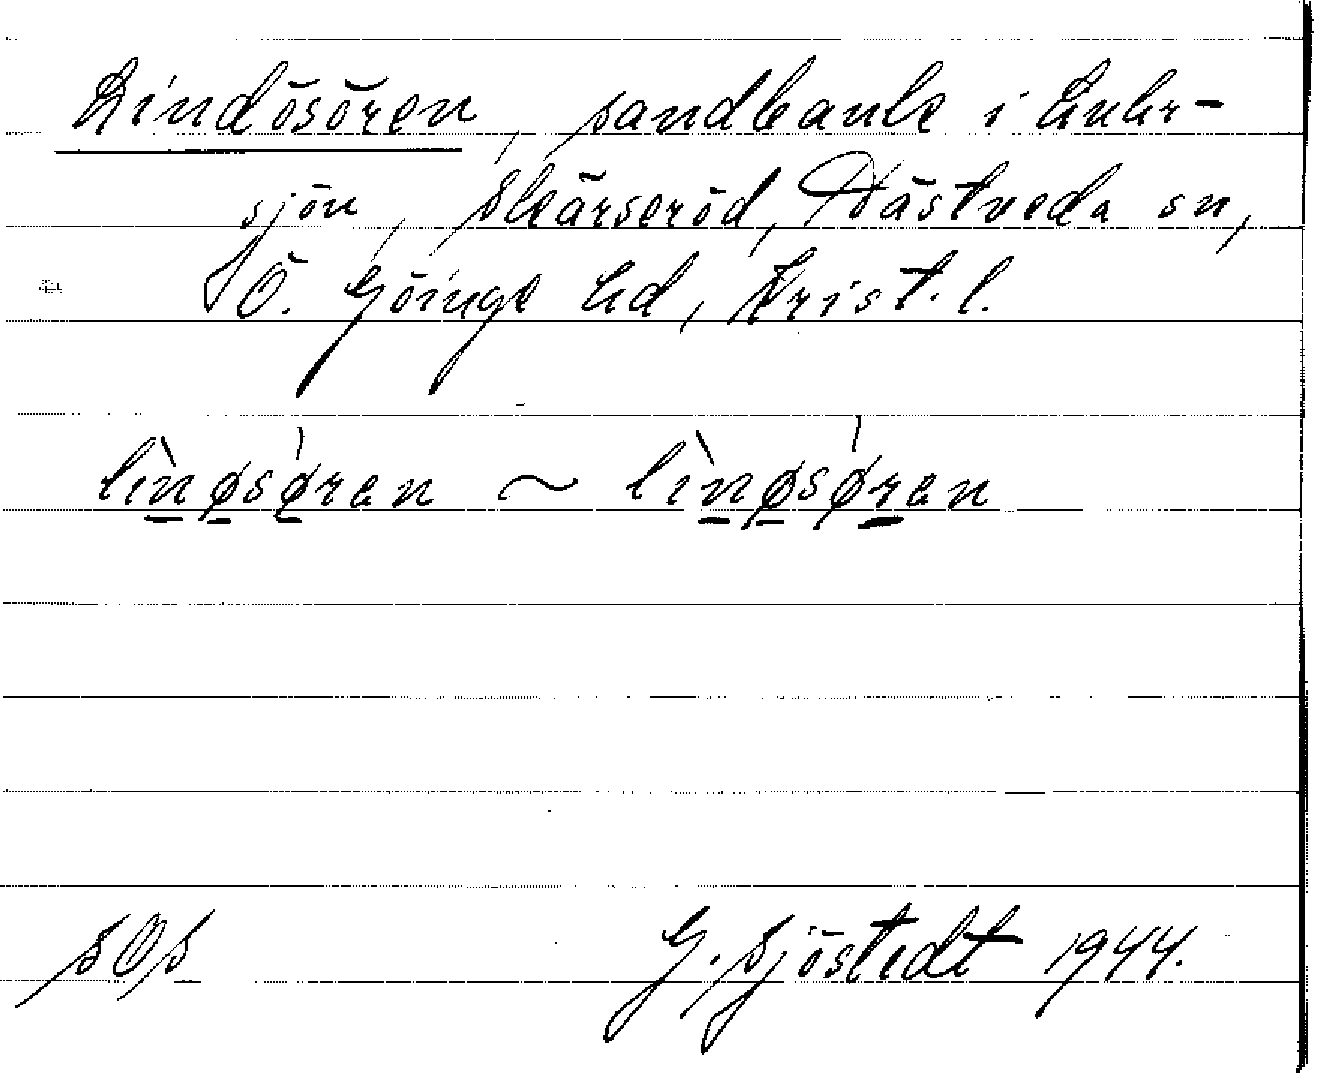 Lindösören, sandbank i Luhr-
sjön, Skärseröd, Hästveda sn,
Ö. Göinge hd, Krist. l.
lìnøsǿren ~ lìnøsǿren
SOS G. Sjöstedt 1944.